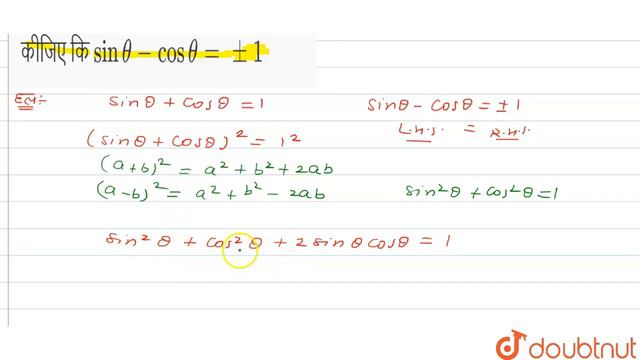 कीजिए कि sinθ − cosθ = ±1
हल:- sinθ + cosθ = 1 sinθ - cosθ = ±1
L.H.S. = R.H.S.
(sinθ + cosθ)² = 1²
(a+b)² = a² + b² + 2ab
(a-b)² = a² + b² - 2ab sin²θ + cos²θ = 1
sin²θ + cos²θ + 2 sinθ cosθ = 1
doubtnut